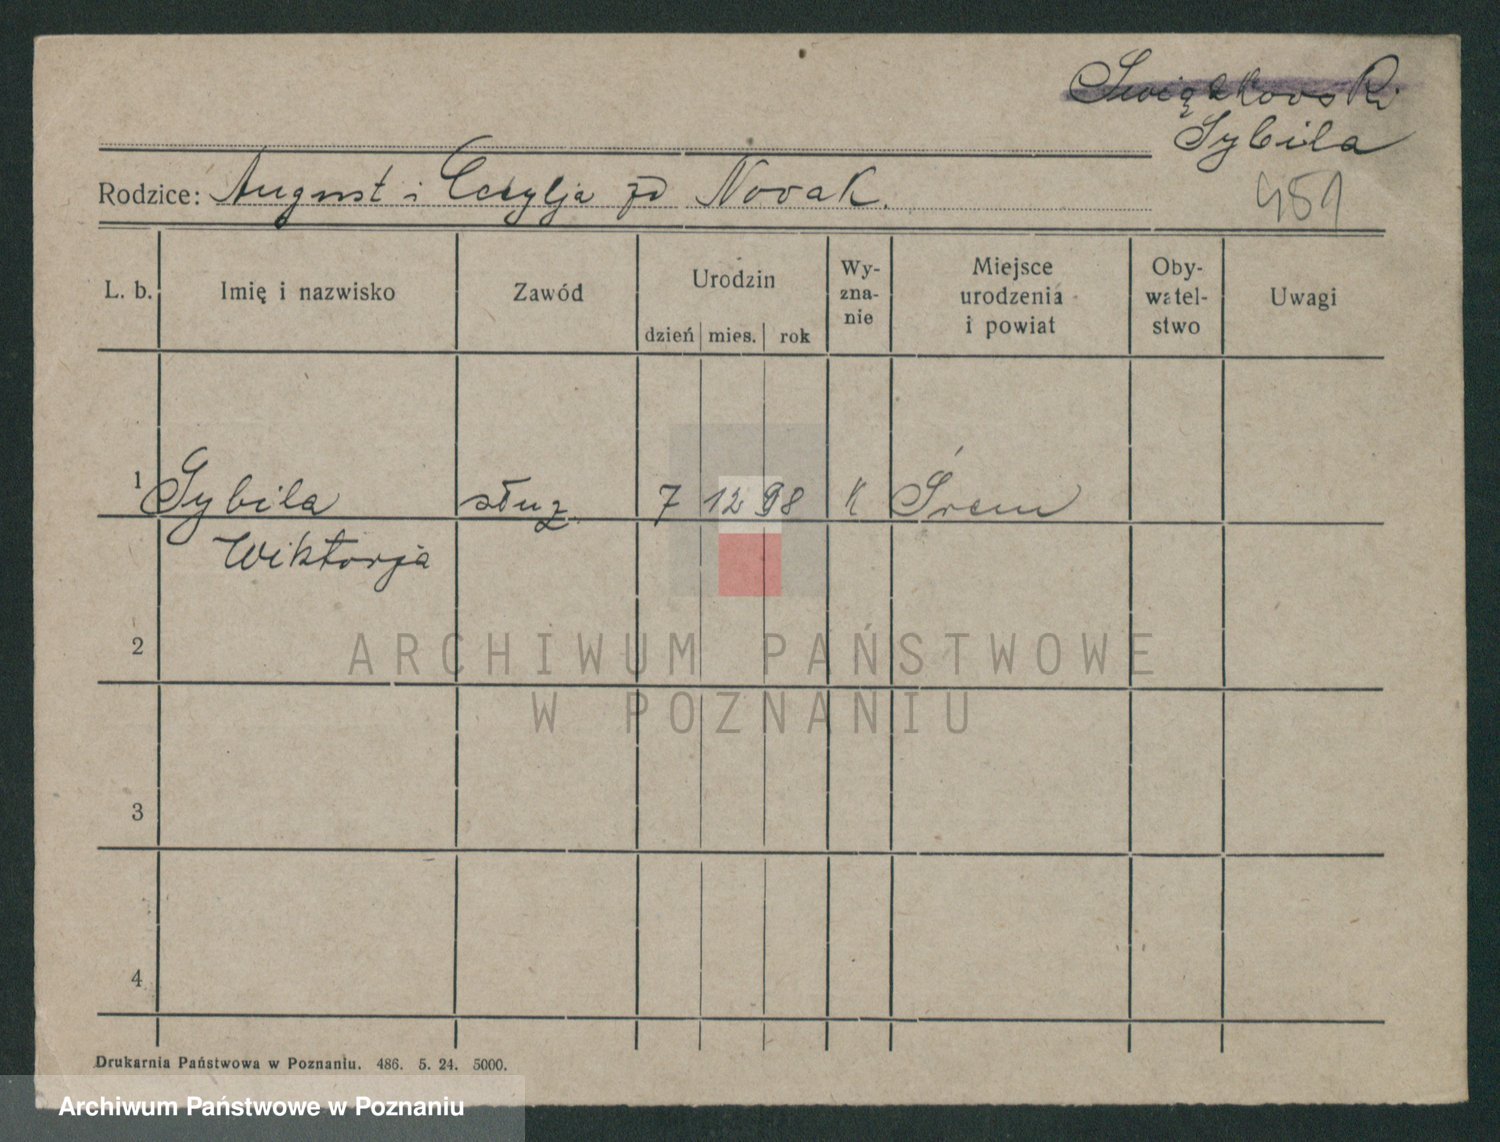 Swiątkowski
Sybila
Rodzice: August i Cecylja zd Novak.
451
L. b.
Imię i nazwisko
Zawód
Urodzin
dzień mies. rok
Wy-
zna-
nie
Miejsce
urodzenia
i powiat
Oby-
watel-
stwo
Uwagi
1 Sybila służ. 7 12 98 K Śrem
Wiktorja
2
3
4
ARCHIWUM PAŃSTWOWE
W POZNANIU
Drukarnia Państwowa w Poznaniu. 486. 5. 24. 5000.
Archiwum Państwowe w Poznaniu